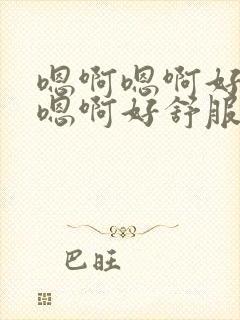 嗯啊嗯啊好
嗯啊好舒服
巴旺